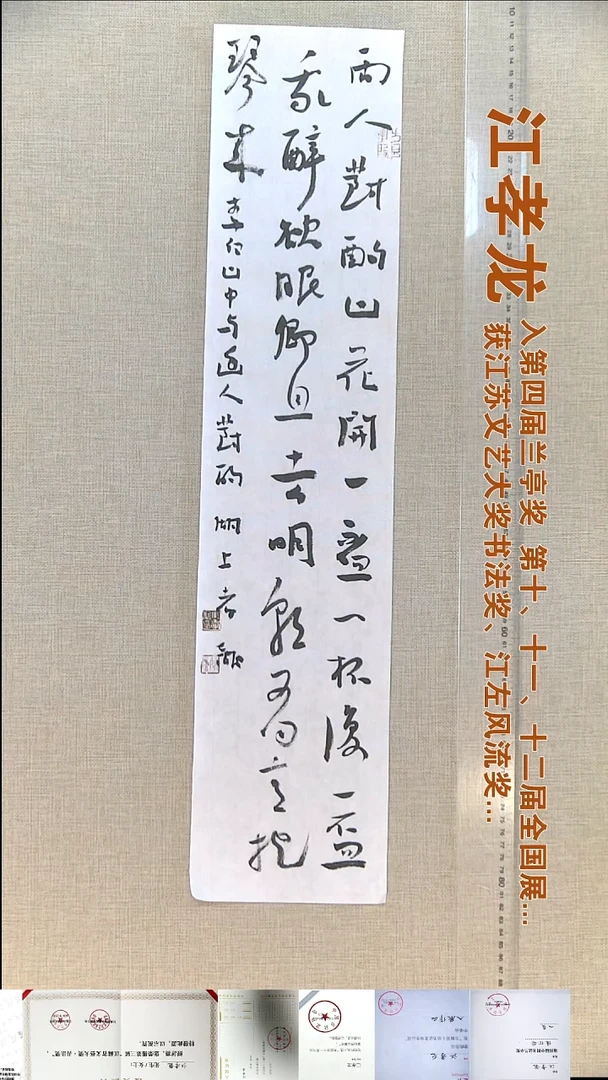 两人對酌山花開一盃一杯復一盃
我醉欲眠卿且去明朝有意抱
琴来 李白山中与幽人對酌 湖上孝龍
江孝龙
入第四届兰亭奖 第十、十一、十二届全国展...
获江苏文艺大奖书法奖、江左风流奖...